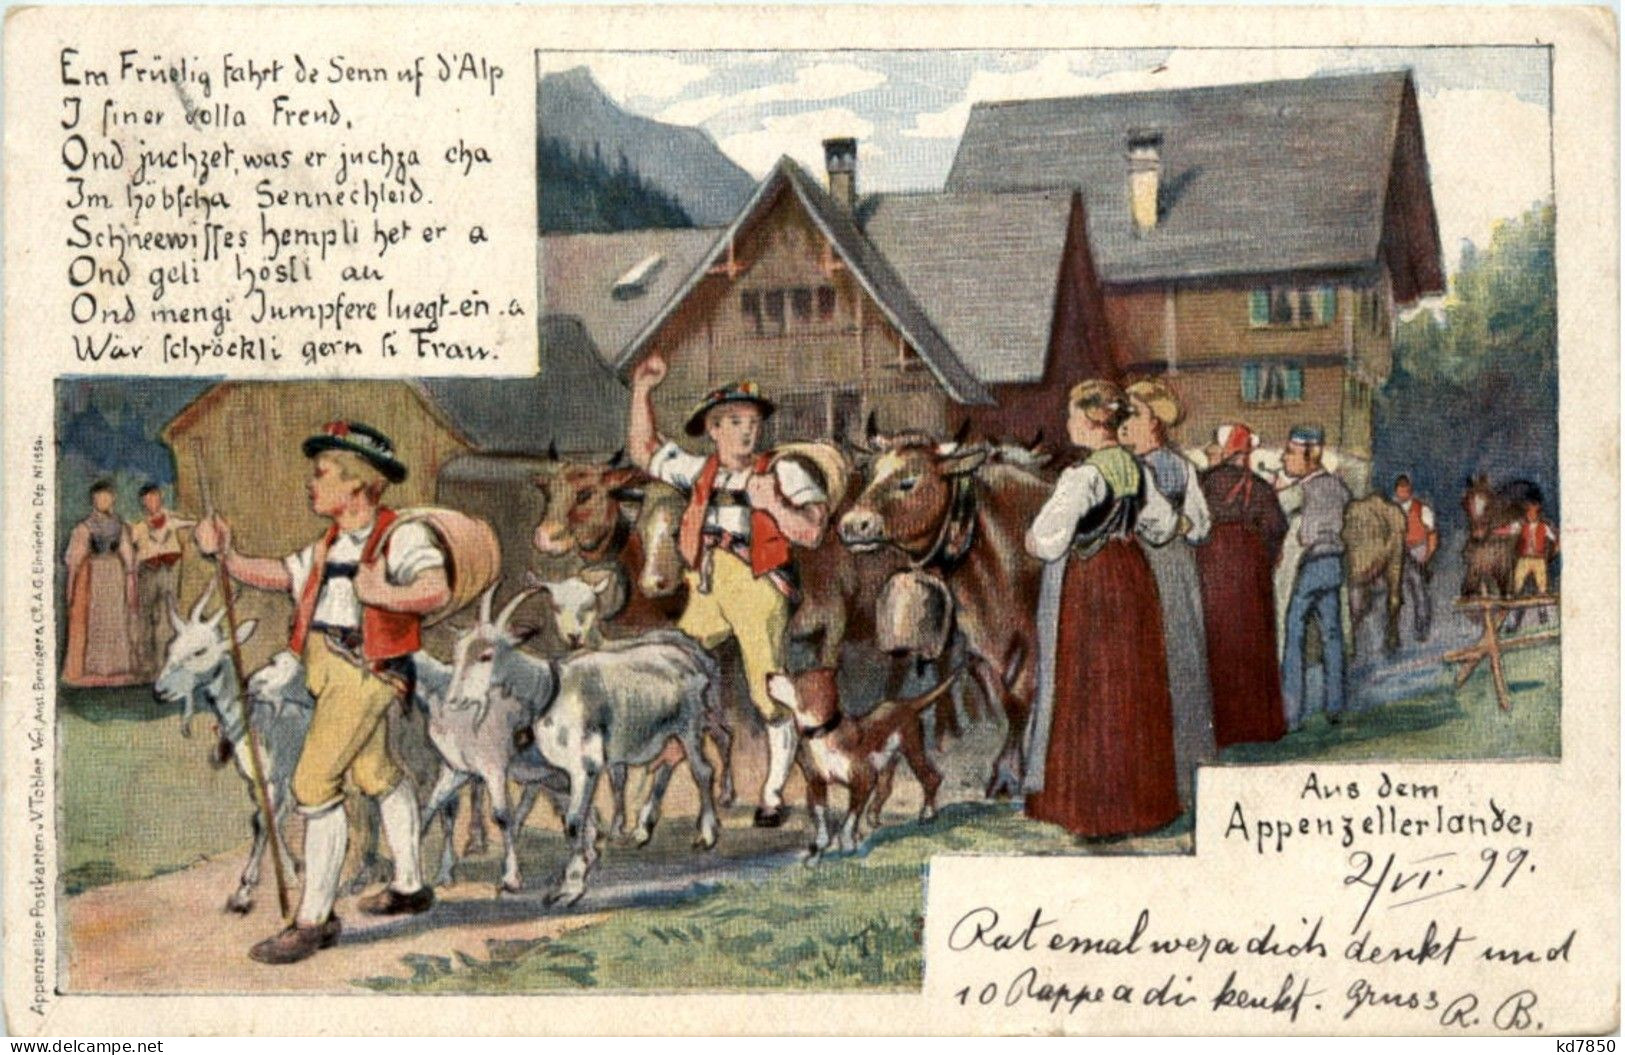 Em Früelig fahrt de Senn uf d'Alp
I siner volla Freud,
Ond juchzet, was er juchza cha
Im höbscha Sennechleid.
Schneewisses hempli het er a
Ond geli hösli au
Ond mengi Jumpfere luegt-en-a
Wär schröckli gern si Frau.
Appenzeller Postkarten v. V. Tobler. Verl. Anst. Benziger & Co. A.G. Einsiedeln. Dép. No 155a.
V. T.
Aus dem
Appenzellerlande,
2/VI. 99.
Rat emal wer a dich denkt und
10 Rappe a di henkt. Gruss R. B.
kd7850
www.delcampe.net